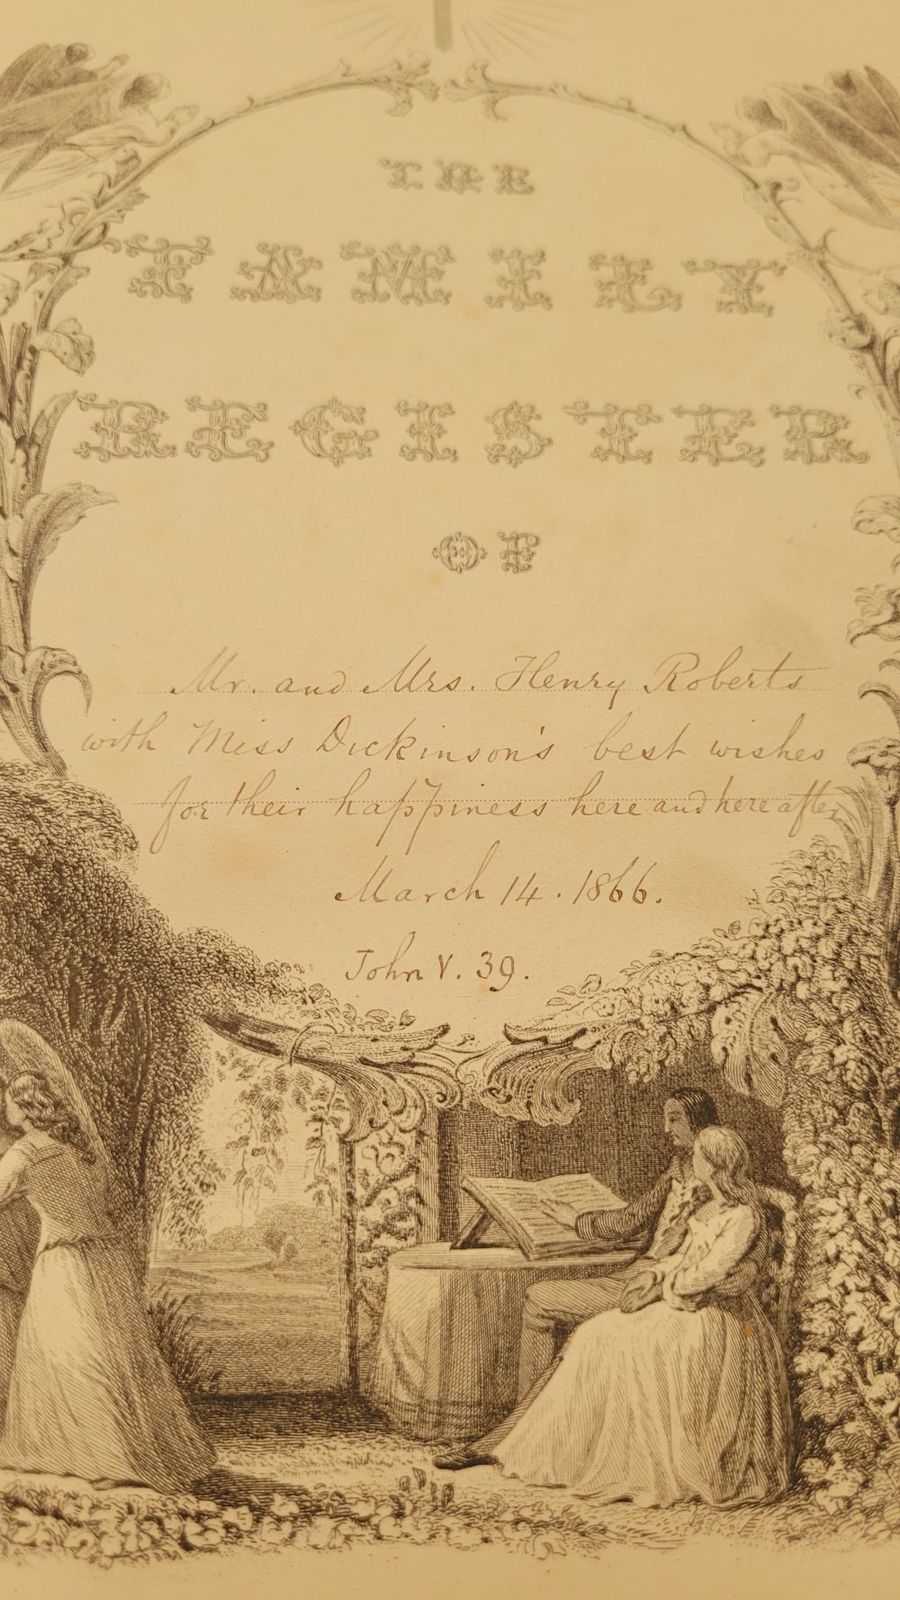 THE
FAMILY
REGISTER
OF
Mr. and Mrs. Henry Roberts
with Miss Dickinson's best wishes
for their happiness here and hereafter
March 14. 1866.
John V. 39.